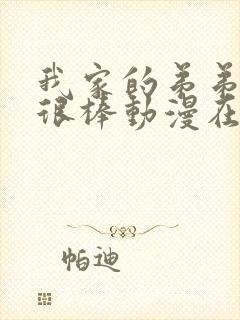 我家的弟弟
很棒動漫在
帕迪